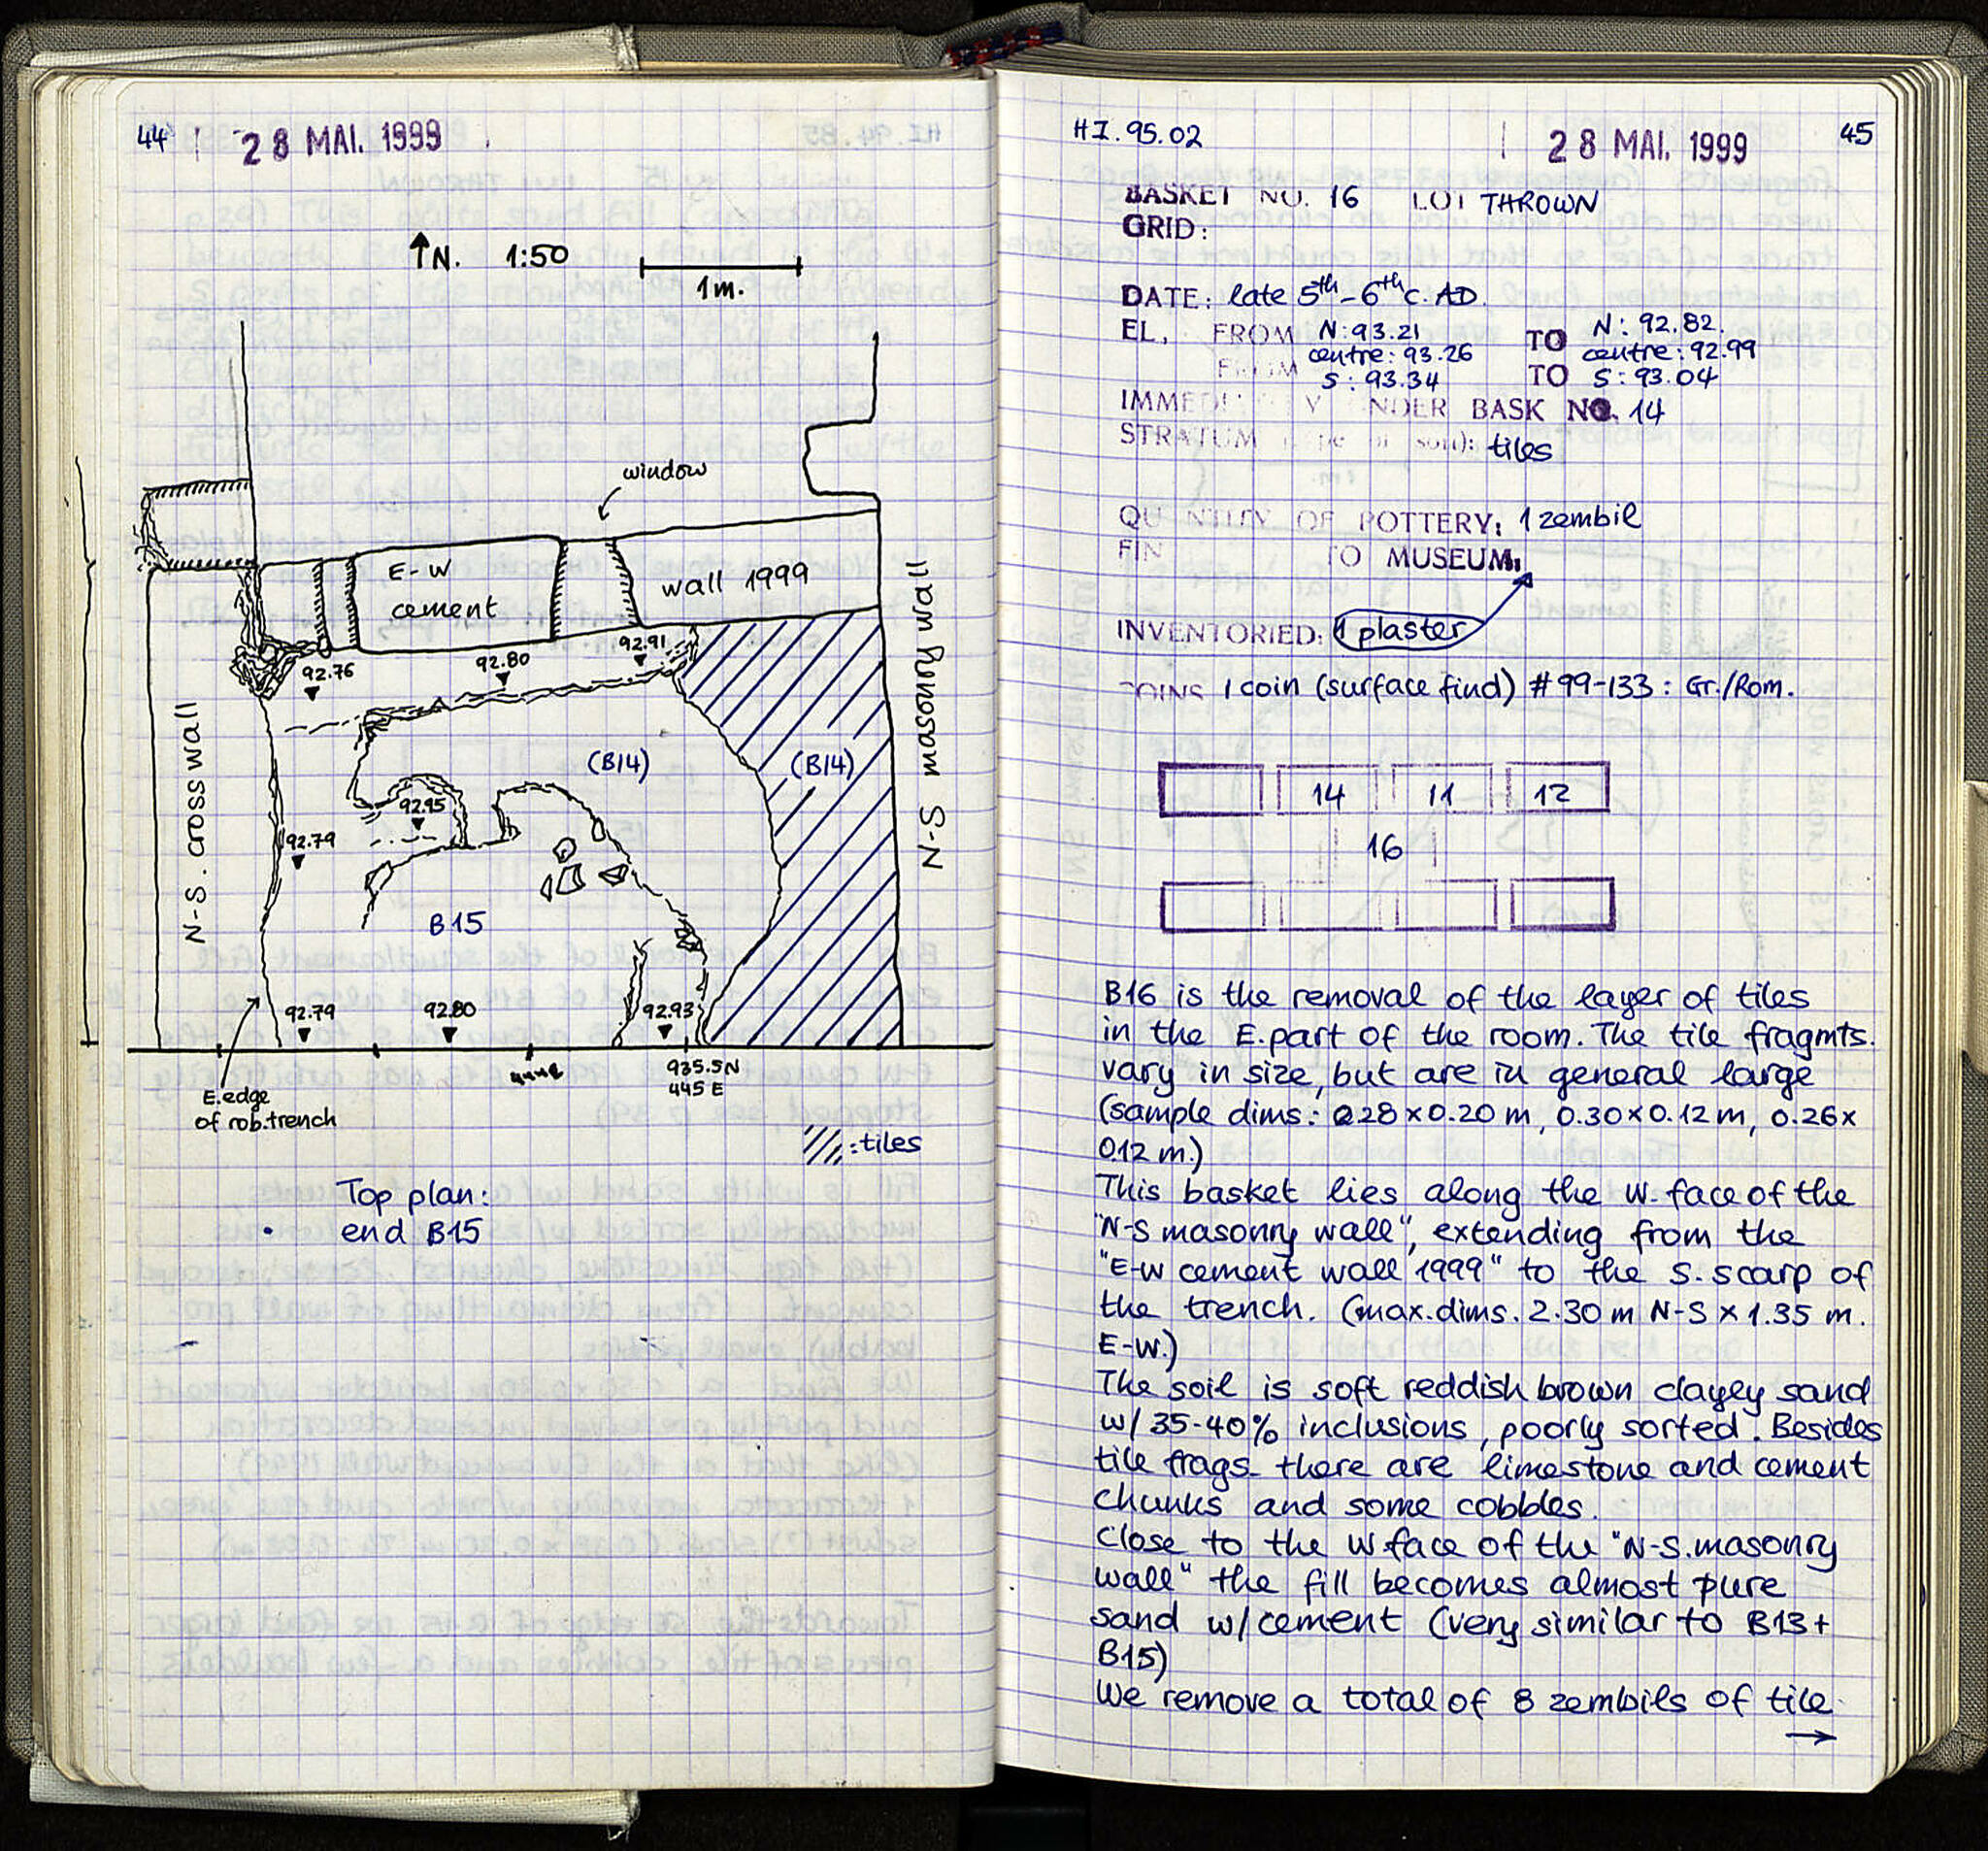 44
28 MAI. 1999
↑N. 1:50
1m.
window
E-W
cement
wall 1999
N-S masonry wall
N-S. cross wall
92.76
92.80
92.91
(B14)
(B14)
92.95
92.79
B15
92.79
92.80
92.93
935.5N
445 E
E.edge
of rob.trench
: tiles
Top plan:
• end B15
HI.95.02
28 MAI. 1999
45
BASKET NO. 16 LOT THROWN
GRID:
DATE: late 5th-6th c. AD.
EL, FROM N: 93.21 TO N: 92.82.
centre: 93.26 centre: 92.99
FROM S: 93.34 TO S: 93.04
UNDER BASK NO. 14
STRATUM soil): tiles
QUANTITY OF POTTERY: 1 zembil
TO MUSEUM:
INVENTORIED: 1 plaster
COINS 1 coin (surface find) #99-133: Gr./Rom.
14 11 12
16
B16 is the removal of the layer of tiles
in the E.part of the room. The tile fragmts.
vary in size, but are in general large
(sample dims: 0.28 x 0.20 m, 0.30 x 0.12 m, 0.26 x
0.12 m.)
This basket lies along the W. face of the
"N-S masonry wall", extending from the
"E-W cement wall 1999" to the S. scarp of
the trench. (max.dims. 2.30 m N-S x 1.35 m.
E-W.)
The soil is soft reddish brown clayey sand
w/ 35-40% inclusions, poorly sorted. Besides
tile frags. there are limestone and cement
chunks and some cobbles.
Close to the W face of the "N-S. masonry
wall" the fill becomes almost pure
sand w/ cement (very similar to B13 +
B15)
We remove a total of 8 zembils of tile.
→